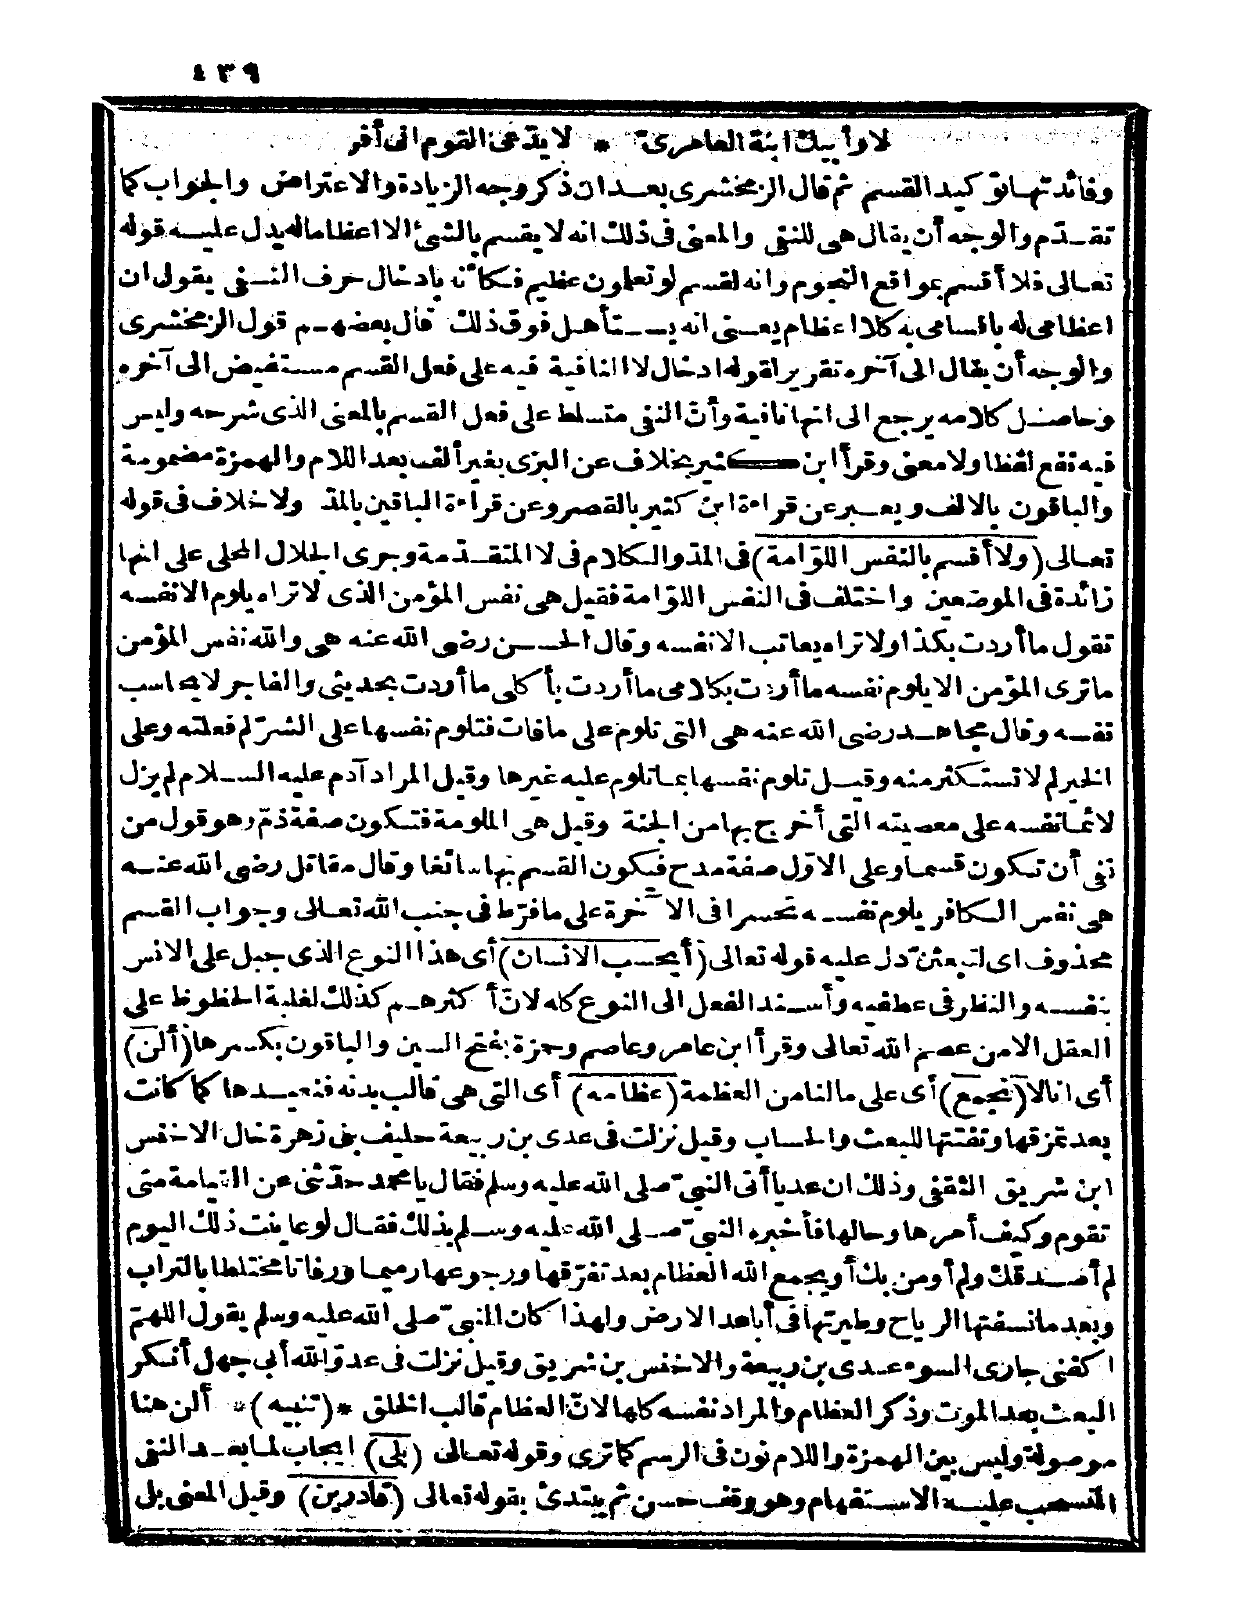 ٤٣٩
لا وأبيك ابنة العامرى * لا يدّعى القوم انى أفر
وفائدتها توكيد القسم ثم قال الزمخشرى بعد ان ذكر وجه الزيادة والاعتراض والجواب كما
تقدّم والوجه أن يقال هى للنفى والمعنى فى ذلك انه لا يقسم بالشئ الا اعظاما له يدل عليه قوله
تعالى فلا أقسم بمواقع النجوم وانه لقسم لو تعلمون عظيم فكأنه بادخال حرف النفى يقول ان
اعظامى له باقسامى به كلا اعظام يعنى انه يستأهل فوق ذلك قال بعضهم قول الزمخشرى
والوجه أن يقال الى آخره تقرير لقوله ادخال لا النافية فيه على فعل القسم مستفيض الى آخره
وحاصل كلامه يرجع الى انها نافية وأنّ النفى متسلط على فعل القسم بالمعنى الذى شرحه وليس
فيه نفع لفظا ولا معنى وقرأ ابن كثير بخلاف عن البزى بغير ألف بعد اللام والهمزة مضمومة
والباقون بالالف ويعبر عن قراءة ابن كثير بالقصر وعن قراءة الباقين بالمد ولا خلاف فى قوله
تعالى (ولا أقسم بالنفس اللوّامة) فى المد والكلام فى لا المتقدّمة وجرى الجلال المحلى على انها
زائدة فى الموضعين واختلف فى النفس اللوّامة فقيل هى نفس المؤمن الذى لا تراه يلوم الا نفسه
تقول ما أردت بكذا ولا تراه يعاتب الا نفسه وقال الحسن رضى الله عنه هى والله نفس المؤمن
ما ترى المؤمن الا يلوم نفسه ما أردت بكلامى ما أردت بأكلى ما أردت بحديثى والفاجر لا يحاسب
نفسه وقال مجاهد رضى الله عنه هى التى تلوم على ما فات فتلوم نفسها على الشرّ لم فعلته وعلى
الخير لم لا تستكثر منه وقيل تلوم نفسها بما تلوم عليه غيرها وقيل المراد آدم عليه السلام لم يزل
لائما نفسه على معصيته التى أخرج بها من الجنة وقيل هى الملومة فتكون صفة ذمّ وهو قول من
نفى أن تكون قسما وعلى الاوّل صفة مدح فيكون القسم بها سائغا وقال مقاتل رضى الله عنه
هى نفس الكافر يلوم نفسه تحسرا فى الآخرة على ما فرّط فى جنب الله تعالى وجواب القسم
محذوف اى لتبعثنّ دل عليه قوله تعالى (أيحسب الانسان) أى هذا النوع الذى جبل على الانس
بنفسه والنظر فى عطفيه وأسند الفعل الى النوع كله لانّ أكثرهم كذلك لغلبة الحظوظ على
العقل الا من عصم الله تعالى وقرأ ابن عامر وعاصم وحمزة بفتح السين والباقون بكسرها (ألن)
أى انا لا (نجمع) أى على ما لنا من العظمة (عظامه) أى التى هى قالب بدنه فنعيدها كما كانت
بعد تمزقها وتفتتها للبعث والحساب وقيل نزلت فى عدى بن ربيعة حليف بنى زهرة خال الاخنس
ابن شريق الثقفى وذلك ان عديا أتى النبىّ صلى الله عليه وسلم فقال يا محمد حدّثنى عن القيامة متى
تقوم وكيف أمرها وحالها فأخبره النبىّ صلى الله عليه وسلم بذلك فقال لو عاينت ذلك اليوم
لم أصدقك ولم أومن بك أو يجمع الله العظام بعد تفرّقها ورجوعها رميما ورفاتا مختلطا بالتراب
وبعد ما نسفتها الرياح وطيرتها فى أباعد الارض ولهذا كان النبىّ صلى الله عليه وسلم يقول اللهمّ
اكفنى جارى السوء عدى بن ربيعة والاخنس بن شريق وقيل نزلت فى عدوّ الله أبى جهل أنكر
البعث بعد الموت وذكر العظام والمراد نفسه كلها لانّ العظام قالب الخلق *(تنبيه)* ألن هنا
موصولة وليس بين الهمزة واللام نون فى الرسم كما ترى وقوله تعالى (بلى) ايجاب لما بعد النفى
المنسحب عليه الاستفهام وهو وقف حسن ثم يبتدئ بقوله تعالى (قادرين) وقيل المعنى بل